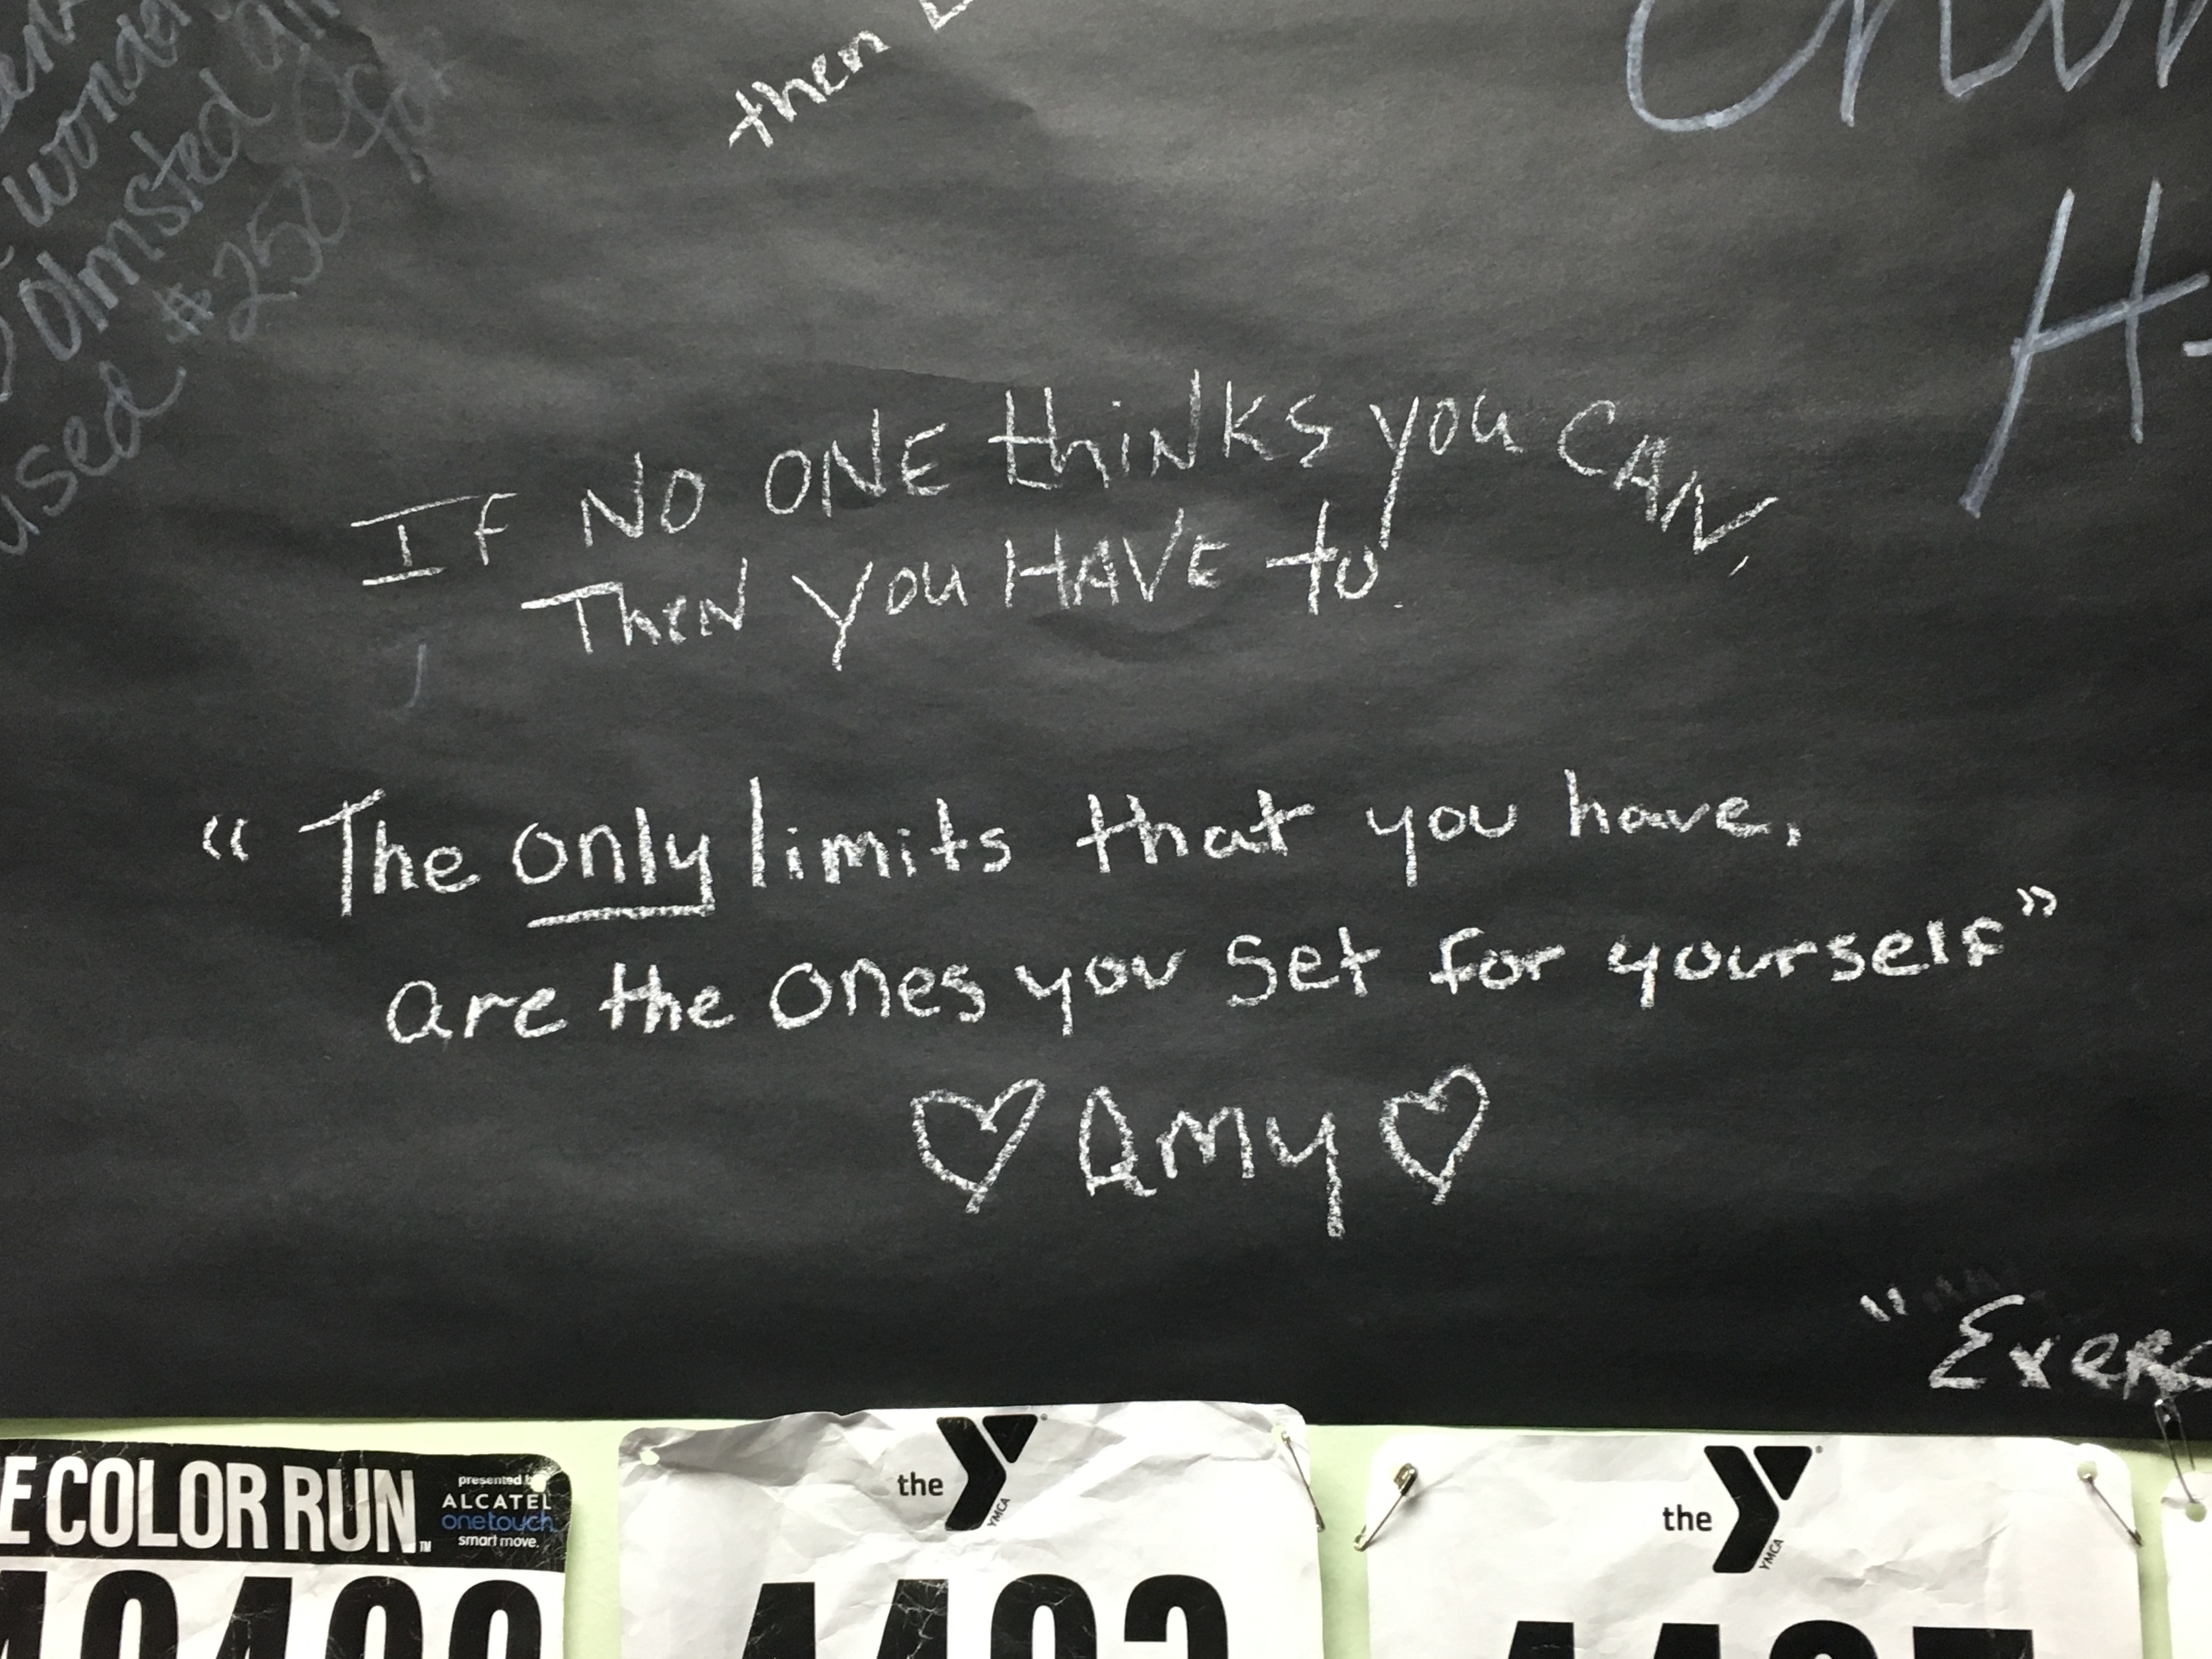 then
wonde
Olmsted
$250
used
If NO ONE thinks you CAN,
Then you HAVE to.
“The only limits that you have,
are the ones you set for yourself”
♡ Amy ♡
E COLOR RUN™
presented by
ALCATEL
onetouch
smart move.
the Y®
YMCA
the Y®
YMCA